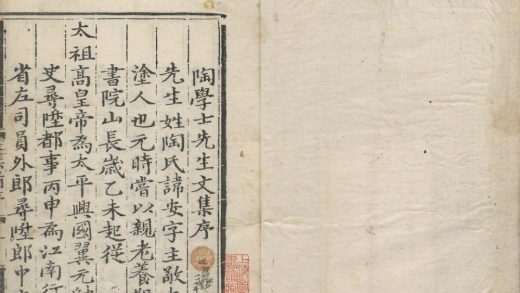 陶學士先生文集序
先生姓陶氏諱安字主敬
塗人也元時嘗以親老養
書院山長歲乙未起從
太祖高皇帝為太平興國翼元
史尋陞都事丙申為江南行
省左司員外郎尋陞郎中